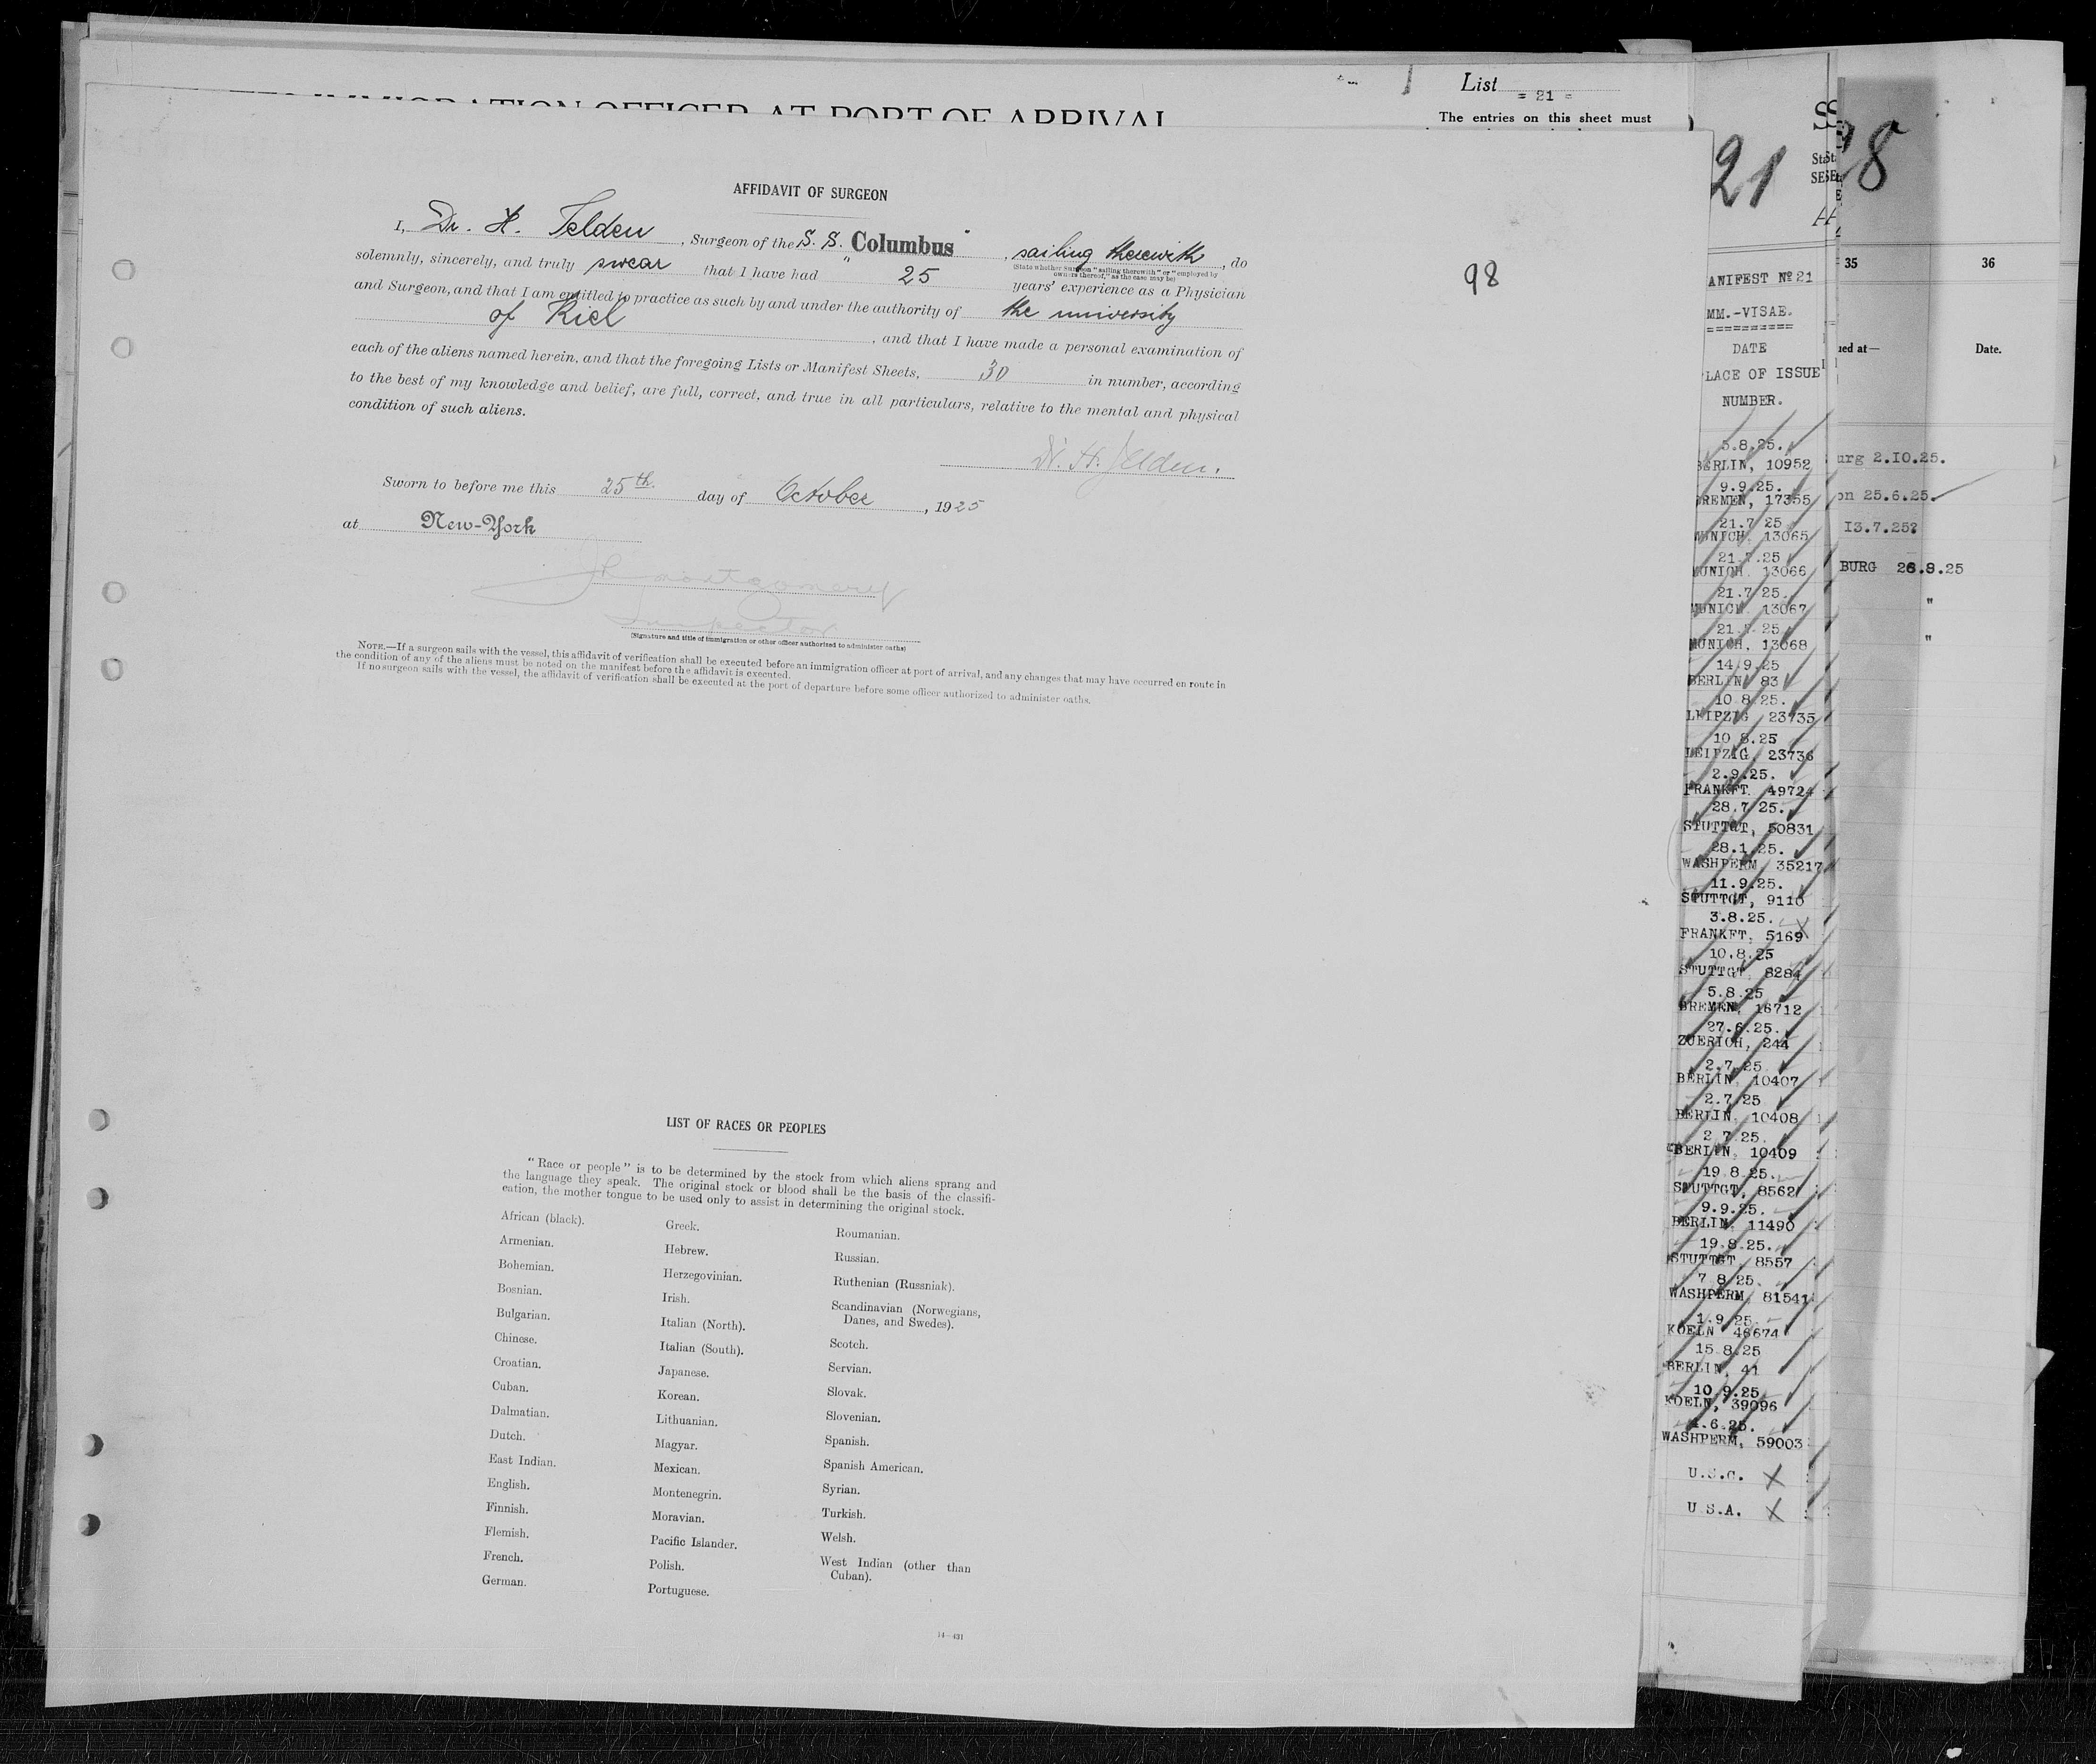 List
= 21 =
The entries on this sheet must
IMMIGRATION OFFICER AT PORT OF ARRIVAL
AFFIDAVIT OF SURGEON
I, Dr. H. Telden, Surgeon of the S. S. "Columbus", sailing therewith, do
(State whether surgeon "sailing therewith" or "employed by owners thereof," as the case may be)
solemnly, sincerely, and truly swear that I have had 25 years' experience as a Physician
and Surgeon, and that I am entitled to practice as such by and under the authority of the university
of Kiel, and that I have made a personal examination of
each of the aliens named herein, and that the foregoing Lists or Manifest Sheets, 30 in number, according
to the best of my knowledge and belief, are full, correct, and true in all particulars, relative to the mental and physical
condition of such aliens.
Dr. H. Telden.
Sworn to before me this 25th day of October, 1925
at New-York
Montgomery
Inspector
(Signature and title of immigration or other officer authorized to administer oaths)
NOTE.—If a surgeon sails with the vessel, this affidavit of verification shall be executed before an immigration officer at port of arrival, and any changes that may have occurred en route in
the condition of any of the aliens must be noted on the manifest before the affidavit is executed.
If no surgeon sails with the vessel, the affidavit of verification shall be executed at the port of departure before some officer authorized to administer oaths.
98
LIST OF RACES OR PEOPLES
"Race or people" is to be determined by the stock from which aliens sprang and
the language they speak. The original stock or blood shall be the basis of the classifi-
cation, the mother tongue to be used only to assist in determining the original stock.
African (black).
Armenian.
Bohemian.
Bosnian.
Bulgarian.
Chinese.
Croatian.
Cuban.
Dalmatian.
Dutch.
East Indian.
English.
Finnish.
Flemish.
French.
German.
Greek.
Hebrew.
Herzegovinian.
Irish.
Italian (North).
Italian (South).
Japanese.
Korean.
Lithuanian.
Magyar.
Mexican.
Montenegrin.
Moravian.
Pacific Islander.
Polish.
Portuguese.
Roumanian.
Russian.
Ruthenian (Russniak).
Scandinavian (Norwegians,
Danes, and Swedes).
Scotch.
Servian.
Slovak.
Slovenian.
Spanish.
Spanish American.
Syrian.
Turkish.
Welsh.
West Indian (other than
Cuban).
14—431
21
ANIFEST Nº 21
MM.-VISAE.
==========
DATE
LACE OF ISSUE
NUMBER.
5.8.25.
BERLIN, 10952
9.9.25.
BREMEN, 17355
21.7 25
MUNICH, 13065
21.7.25
MUNICH, 13066
21.7 25.
MUNICH, 13067
21.7.25
MUNICH, 13068
14.9.25
BERLIN, 83
10.8.25.
LEIPZIG 23735
10 8.25
LEIPZIG, 23736
2.9.25.
FRANKFT. 49724
28.7 25.
STUTTGT, 50831
28.1.25.
WASHPERM, 35217
11.9.25.
STUTTGT, 9110
3.8.25.
FRANKFT, 5169
10.8.25
STUTTGT, 8284
5.8.25
BREMEN, 16712
27.6.25.
ZUERICH, 244
2.7.25
BERLIN, 10407
2.7.25
BERLIN, 10408
2 7.25.
BERLIN, 10409
19.8.25.
STUTTGT, 8562
9.9.25.
BERLIN, 11490
19.8.25.
STUTTGT, 8557
7 8 25.
WASHPERM, 81541
1.9 25.
KOELN 46674
15 8.25
BERLIN, 41
10.9.25
KOELN, 39096
4.6.25.
WASHPERM, 59003
U.S.C. X
U S.A. X
8
35
36
ued at—
Date.
urg 2.10.25.
on 25.6.25.
13.7.25?
BURG 26.8.25
"
"